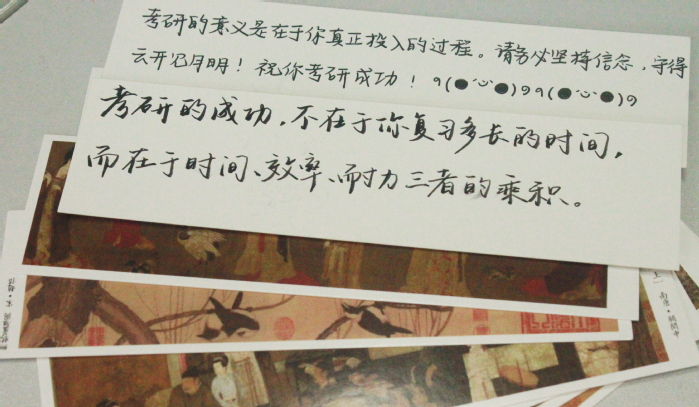 考研的意义是在于你真正投入的过程。请务必坚持信念，守得
云开见月明！祝你考研成功！٩(●˙ᵕ˙●)۶٩(●˙ᵕ˙●)۶
考研的成功，不在于你复习多长的时间，
而在于时间、效率、耐力三者的乘积。